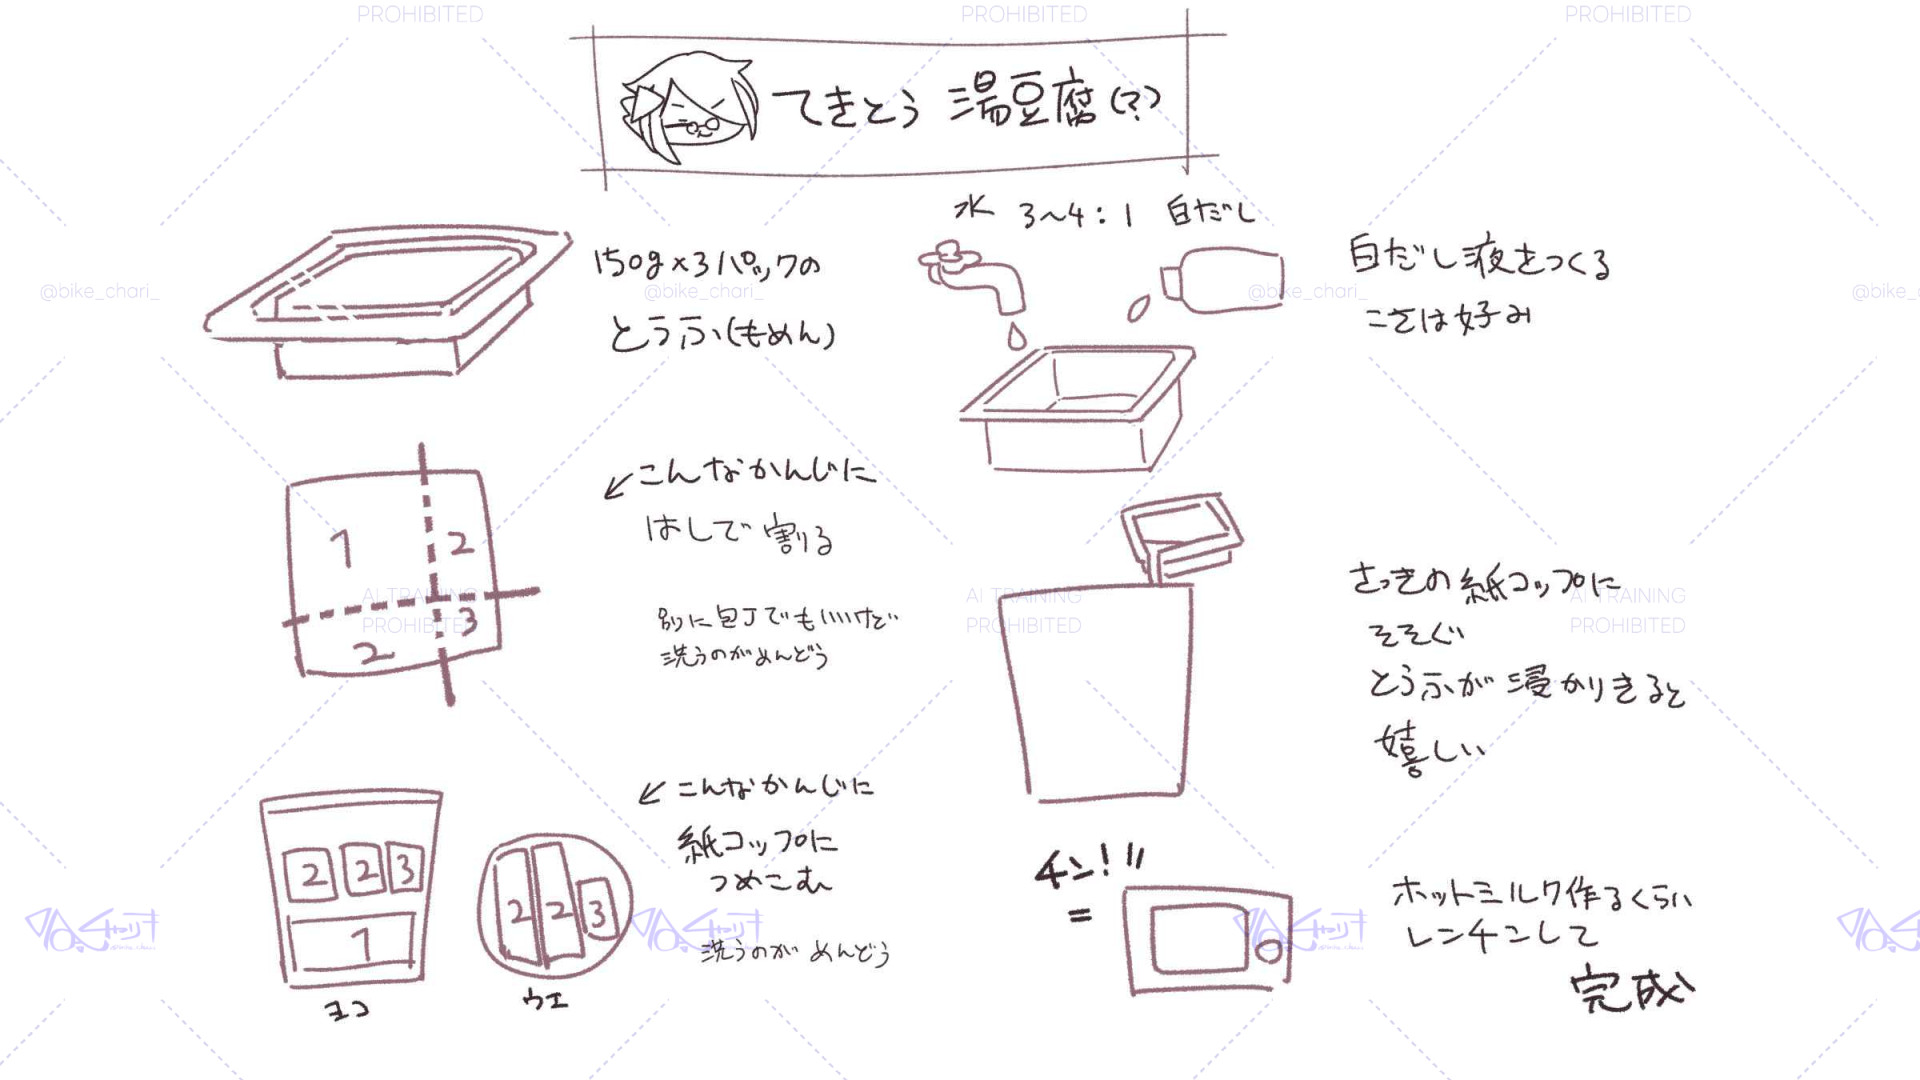 てきとう 湯豆腐(?)
150g×3パックの
とうふ(もめん)
←こんなかんじに
はしで割る
別に包丁でもいいけど
洗うのがめんどう
1
2
2
3
←こんなかんじに
紙コップに
つめこむ
洗うのが めんどう
2 2 3
1
ヨコ
2 2 3
ウエ
水 3〜4:1 白だし
白だし液をつくる
こさは好み
さっきの紙コップに
そそぐ
とうふが浸かりきると
嬉しい
チン!!!
=
ホットミルク作るくらい
レンチンして
完成
PROHIBITED
PROHIBITED
PROHIBITED
@bike_chari_
@bike_chari_
@bike_chari_
@bike_c
AI TRAINING
PROHIBITED
AI TRAINING
PROHIBITED
AI TRAINING
PROHIBITED